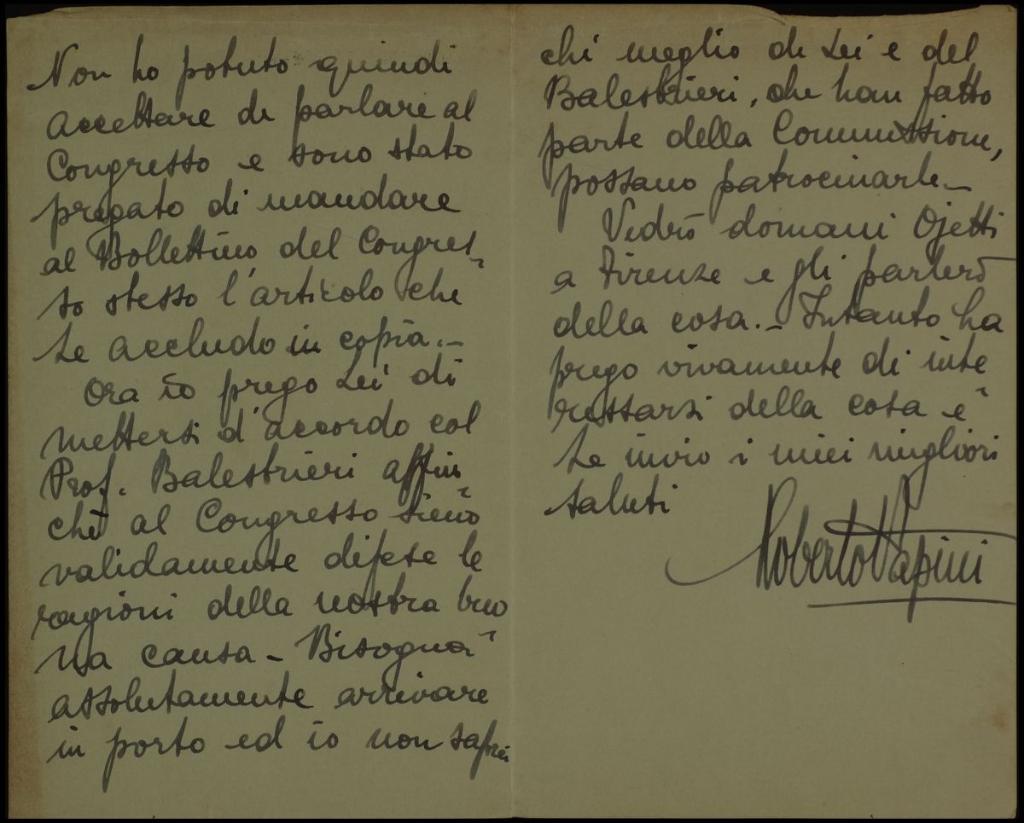 Non ho potuto quindi
accettare di parlare al
Congresso e sono stato
pregato di mandare
al Bollettino del Congres-
so stesso l'articolo che
Le accludo in copia.-
Ora io prego Lei di
mettersi d'accordo col
Prof. Balestrieri affin-
chè al Congresso sieno
validamente difese le
ragioni della nostra buo
na causa - Bisogna
assolutamente arrivare
in porto ed io non saprei
chi meglio di Lei e del
Balestrieri, che han fatto
parte della Commissione,
possano patrocinarle.-
Vedrò domani Ojetti
a Firenze e gli parlerò
della cosa.- Intanto La
prego vivamente di inte
ressarsi della cosa e
Le invio i miei migliori
saluti
Roberto Papini